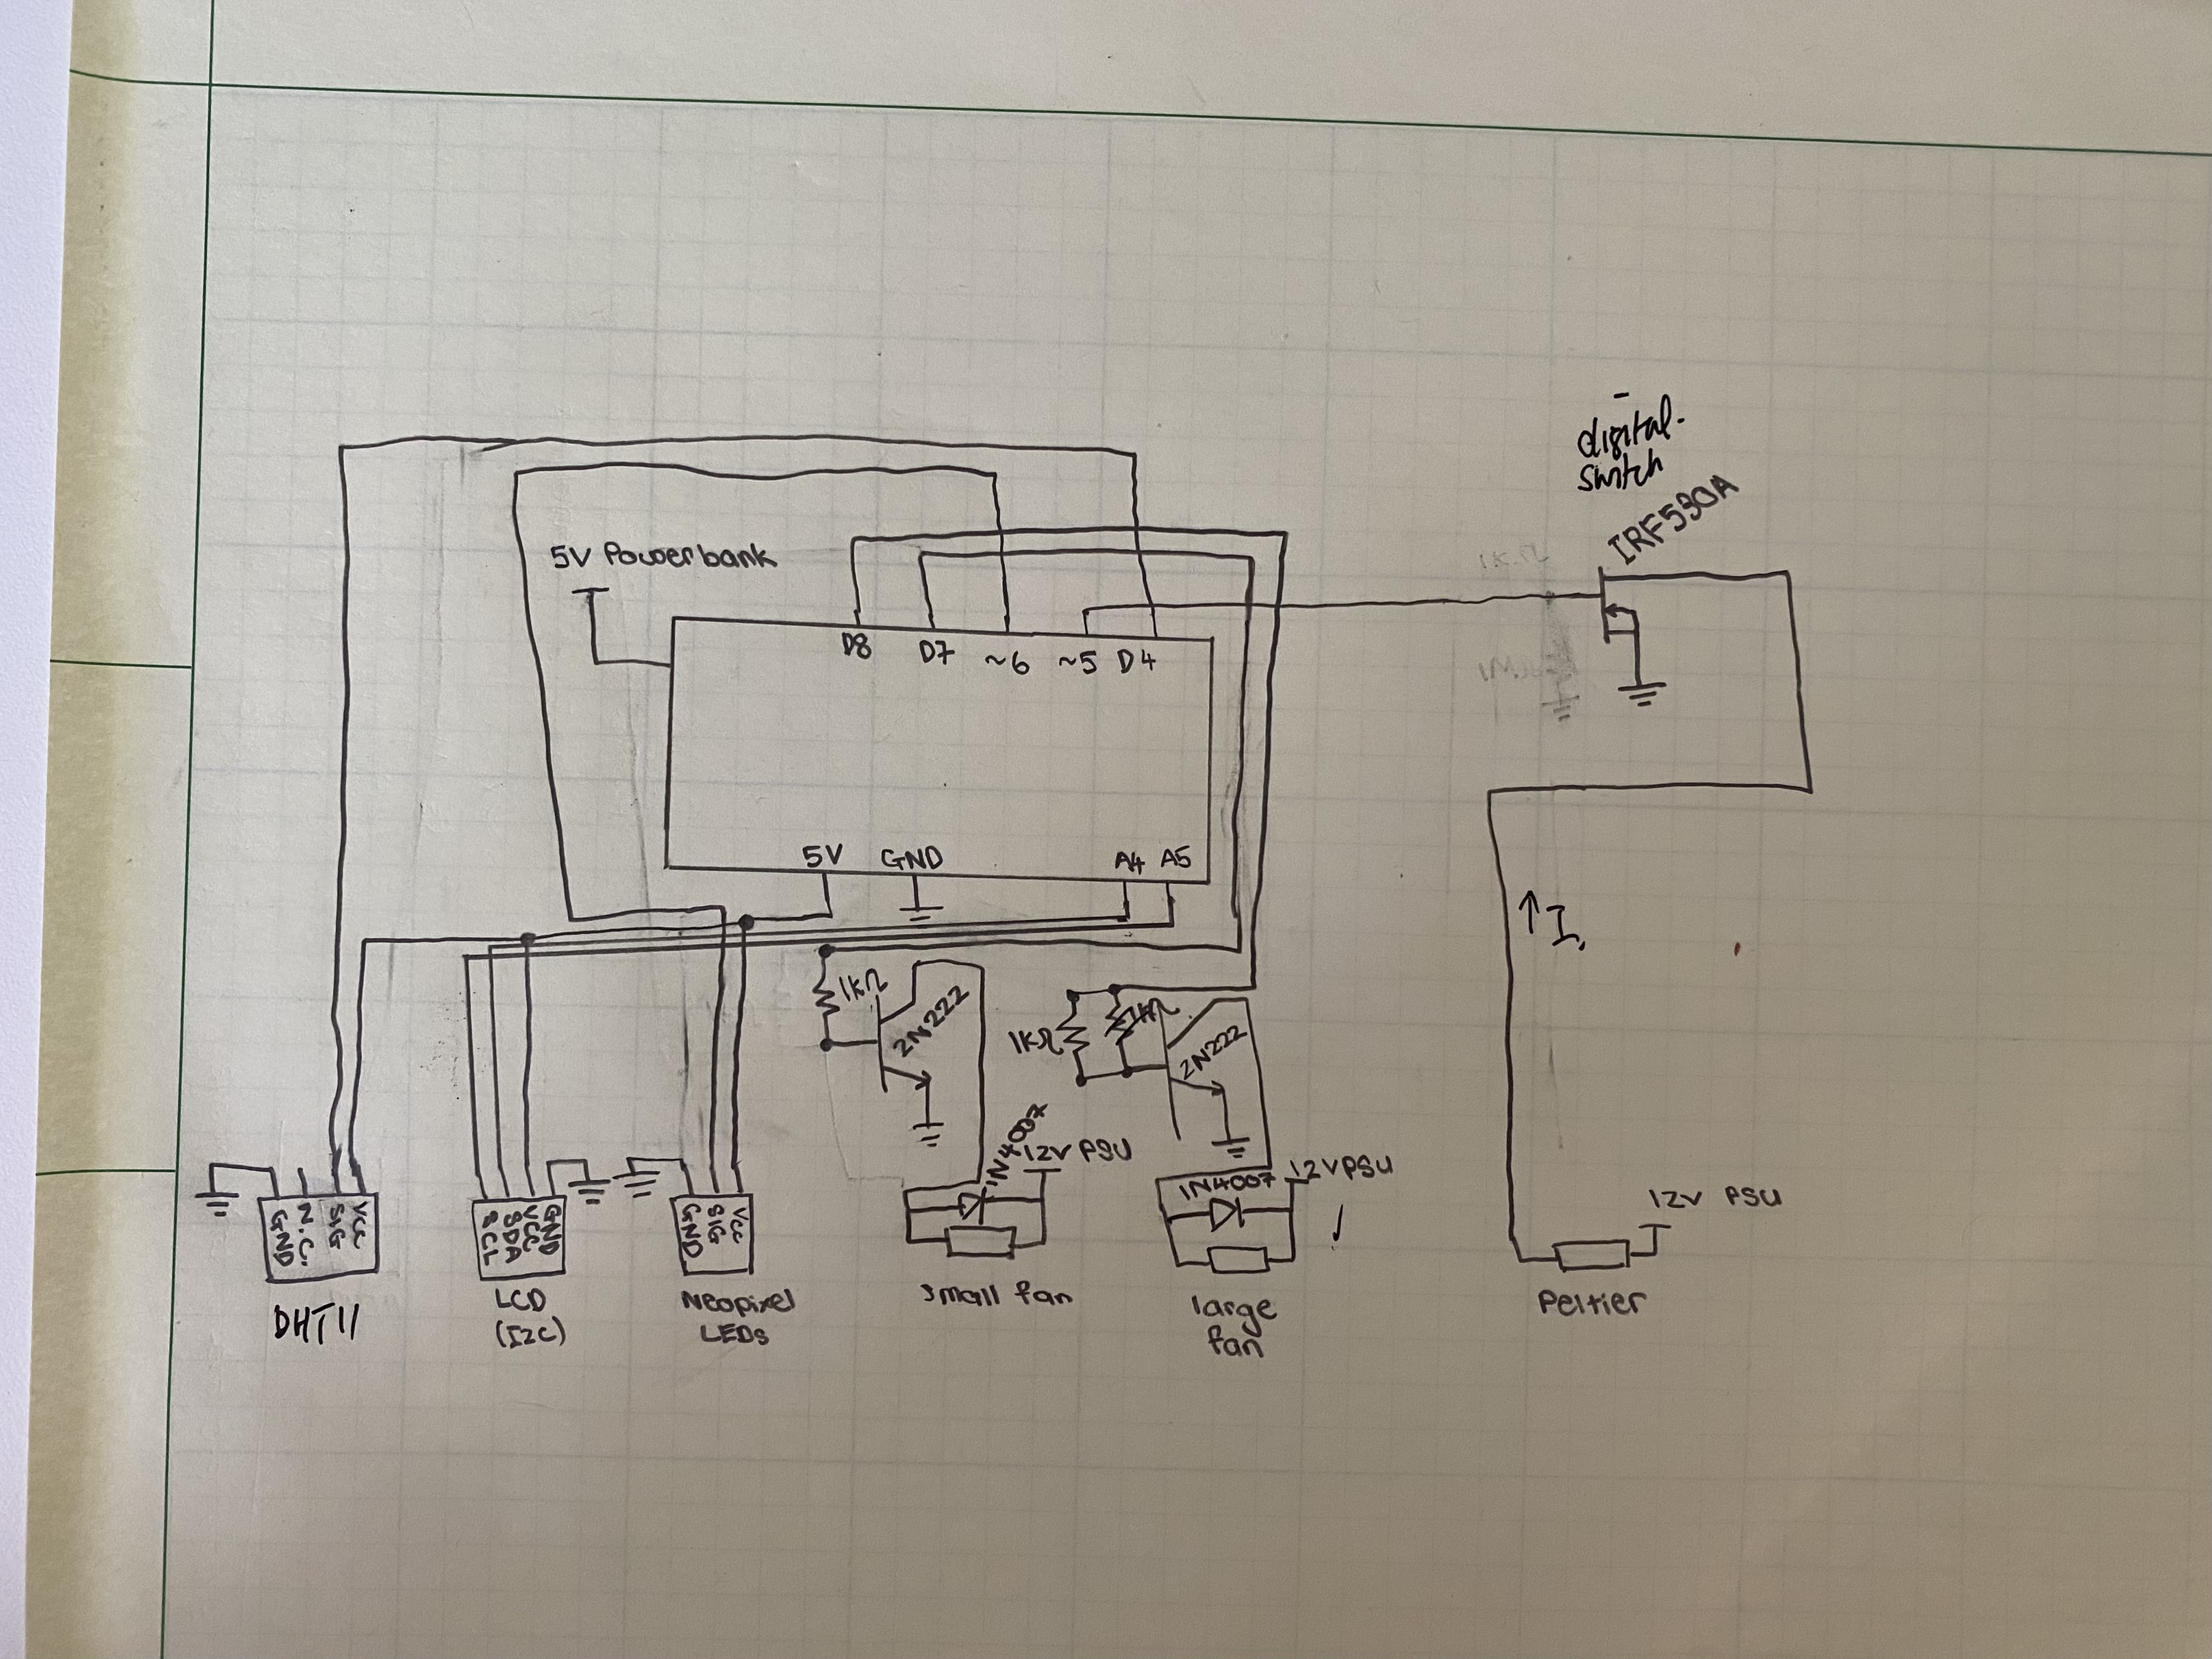 digital-
switch
IRF530A
5V Powerbank
D8 D7 ~6 ~5 D4
5V GND A4 A5
I
1kΩ
2N222
1kΩ
1kΩ
2N222
1N4007
12V PSU
1N4007
12V PSU
12V PSU
GND
N.C.
SIG
VCC
SCL
SDA
VCC
GND
GND
SIG
VCC
DHT11
LCD
(I2C)
Neopixel
LEDs
small fan
large
fan
Peltier